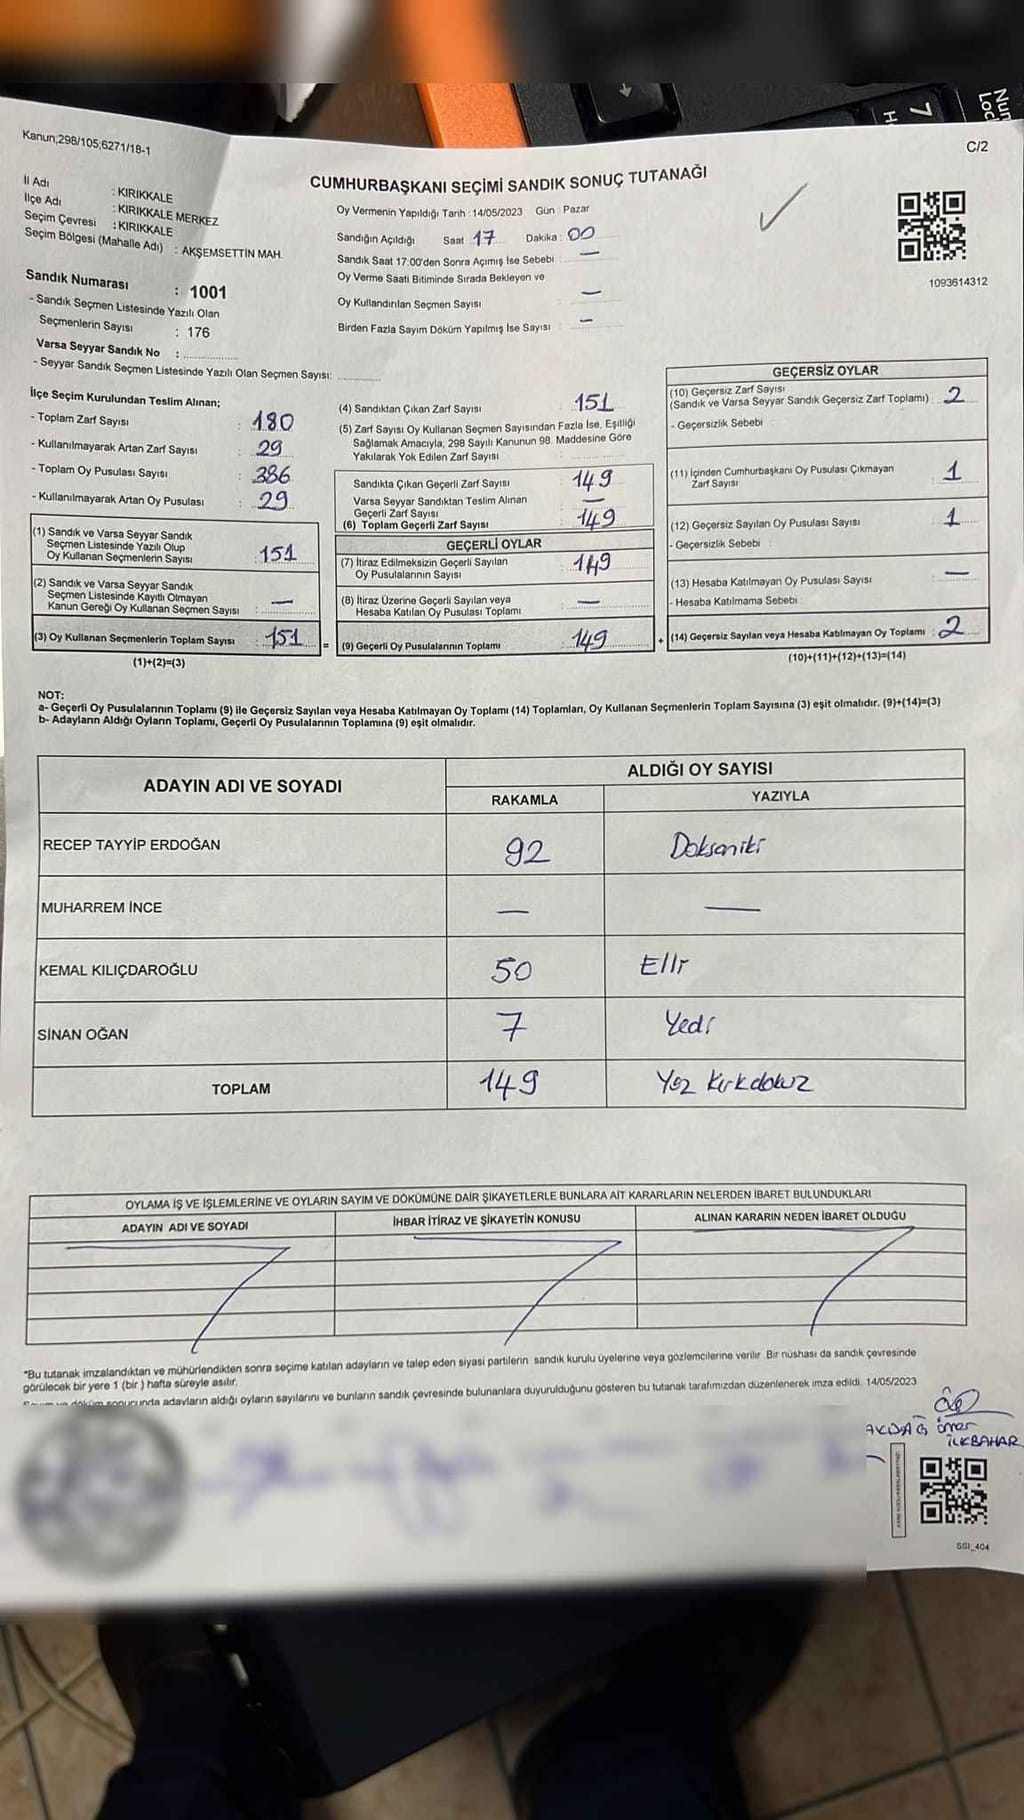 Num
Loc
7
H
Kanun;298/105;6271/18-1
C/2
CUMHURBAŞKANI SEÇİMİ SANDIK SONUÇ TUTANAĞI
İl Adı : KIRIKKALE
İlçe Adı : KIRIKKALE MERKEZ
Seçim Çevresi : KIRIKKALE
Seçim Bölgesi (Mahalle Adı) : AKŞEMSETTİN MAH.
Oy Vermenin Yapıldığı Tarih : 14/05/2023 Gün : Pazar
Sandığın Açıldığı Saat : 17 Dakika : 00
Sandık Saat 17:00'den Sonra Açımış İse Sebebi : —
Oy Verme Saati Bitiminde Sırada Bekleyen ve
Oy Kullandırılan Seçmen Sayısı : —
Birden Fazla Sayım Döküm Yapılmış İse Sayısı : —
1093614312
Sandık Numarası : 1001
- Sandık Seçmen Listesinde Yazılı Olan
Seçmenlerin Sayısı : 176
Varsa Seyyar Sandık No :
- Seyyar Sandık Seçmen Listesinde Yazılı Olan Seçmen Sayısı:
İlçe Seçim Kurulundan Teslim Alınan;
- Toplam Zarf Sayısı : 180
- Kullanılmayarak Artan Zarf Sayısı : 29
- Toplam Oy Pusulası Sayısı : 386
- Kullanılmayarak Artan Oy Pusulası : 29
(1) Sandık ve Varsa Seyyar Sandık
Seçmen Listesinde Yazılı Olup
Oy Kullanan Seçmenlerin Sayısı : 151
(2) Sandık ve Varsa Seyyar Sandık
Seçmen Listesinde Kayıtlı Olmayan
Kanun Gereği Oy Kullanan Seçmen Sayısı : —
(3) Oy Kullanan Seçmenlerin Toplam Sayısı : 151
(1)+(2)=(3)
(4) Sandıktan Çıkan Zarf Sayısı : 151
(5) Zarf Sayısı Oy Kullanan Seçmen Sayısından Fazla İse, Eşitliği
Sağlamak Amacıyla; 298 Sayılı Kanunun 98. Maddesine Göre
Yakılarak Yok Edilen Zarf Sayısı :
Sandıkta Çıkan Geçerli Zarf Sayısı : 149
Varsa Seyyar Sandıktan Teslim Alınan
Geçerli Zarf Sayısı : —
(6) Toplam Geçerli Zarf Sayısı : 149
GEÇERLİ OYLAR
(7) İtiraz Edilmeksizin Geçerli Sayılan
Oy Pusulalarının Sayısı : 149
(8) İtiraz Üzerine Geçerli Sayılan veya
Hesaba Katılan Oy Pusulası Toplamı : —
= (9) Geçerli Oy Pusulalarının Toplamı : 149
GEÇERSİZ OYLAR
(10) Geçersiz Zarf Sayısı
(Sandık ve Varsa Seyyar Sandık Geçersiz Zarf Toplamı) : 2
- Geçersizlik Sebebi :
(11) İçinden Cumhurbaşkanı Oy Pusulası Çıkmayan
Zarf Sayısı : 1
(12) Geçersiz Sayılan Oy Pusulası Sayısı : 1
- Geçersizlik Sebebi :
(13) Hesaba Katılmayan Oy Pusulası Sayısı : —
- Hesaba Katılmama Sebebi :
+ (14) Geçersiz Sayılan veya Hesaba Katılmayan Oy Toplamı : 2
(10)+(11)+(12)+(13)=(14)
NOT:
a- Geçerli Oy Pusulalarının Toplamı (9) ile Geçersiz Sayılan veya Hesaba Katılmayan Oy Toplamı (14) Toplamları, Oy Kullanan Seçmenlerin Toplam Sayısına (3) eşit olmalıdır. (9)+(14)=(3)
b- Adayların Aldığı Oyların Toplamı, Geçerli Oy Pusulalarının Toplamına (9) eşit olmalıdır.
ADAYIN ADI VE SOYADI ALDIĞI OY SAYISI
RAKAMLA YAZIYLA
RECEP TAYYİP ERDOĞAN 92 Doksaniki
MUHARREM İNCE — —
KEMAL KILIÇDAROĞLU 50 Elli
SİNAN OĞAN 7 Yedi
TOPLAM 149 Yüz Kırkdokuz
OYLAMA İŞ VE İŞLEMLERİNE VE OYLARIN SAYIM VE DÖKÜMÜNE DAİR ŞİKAYETLERLE BUNLARA AİT KARARLARIN NELERDEN İBARET BULUNDUKLARI
ADAYIN ADI VE SOYADI İHBAR İTİRAZ VE ŞİKAYETİN KONUSU ALINAN KARARIN NEDEN İBARET OLDUĞU
*Bu tutanak imzalandıktan ve mühürlendikten sonra seçime katılan adayların ve talep eden siyasi partilerin sandık kurulu üyelerine veya gözlemcilerine verilir. Bir nüshası da sandık çevresinde
görülecek bir yere 1 (bir) hafta süreyle asılır.
Sayım ve döküm sonucunda adayların aldığı oyların sayılarını ve bunların sandık çevresinde bulunanlara duyurulduğunu gösteren bu tutanak tarafımızdan düzenlenerek imza edildi. 14/05/2023
AKDAĞ ömer
İLKBAHAR
SSI_404